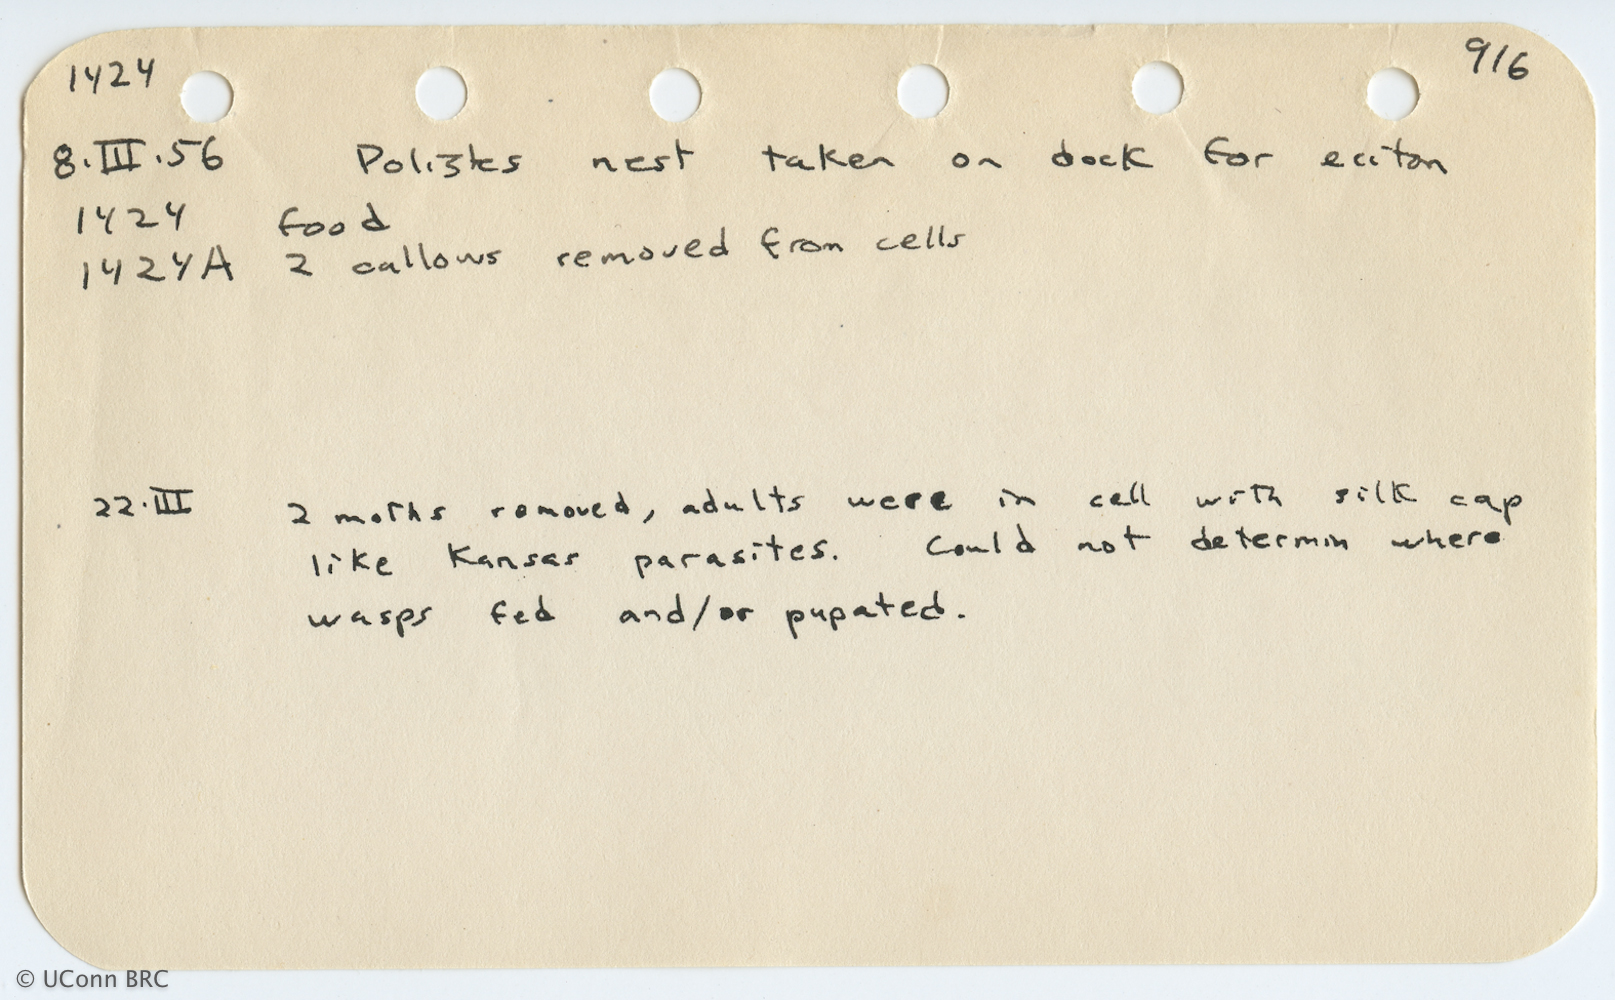 1424 916
8.III.56 Polistes nest taken on dock for eciton
1424 food
1424A 2 callows removed from cells
22.III 2 moths removed, adults were in cell with silk cap
like Kansas parasites. Could not determin where
wasps fed and/or pupated.
© UConn BRC